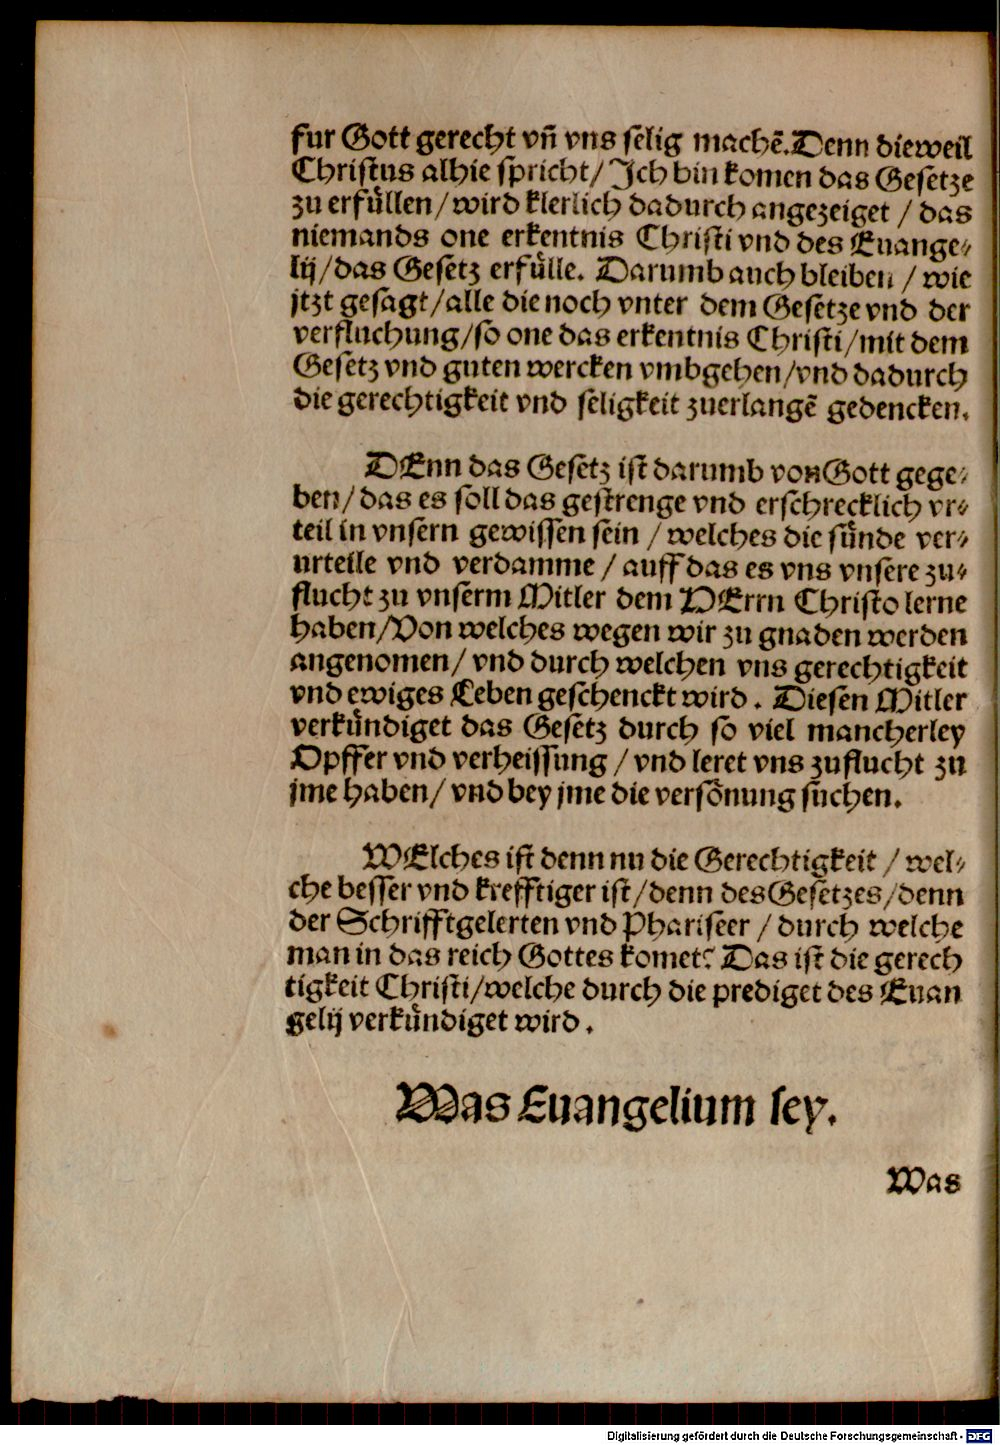 fur Gott gerecht vñ vns selig machẽ. Denn dieweil
Christus alhie spricht / Ich bin komen das Gesetze
zu erfüllen / wird klerlich dadurch angezeiget / das
niemands one erkentnis Christi vnd des Euange⸗
lij / das Gesetz erfülle. Darumb auch bleiben / wie
jtzt gesagt / alle die noch vnter dem Gesetze vnd der
verfluchung / so one das erkentnis Christi / mit dem
Gesetz vnd guten wercken vmbgehen / vnd dadurch
die gerechtigkeit vnd seligkeit zuerlangẽ gedencken.
DEnn das Gesetz ist darumb von Gott gege⸗
ben / das es soll das gestrenge vnd erschrecklich vr⸗
teil in vnsern gewissen sein / welches die sünde ver⸗
urteile vnd verdamme / auff das es vns vnsere zu⸗
flucht zu vnserm Mitler dem HErrn Christo lerne
haben / Von welches wegen wir zu gnaden werden
angenomen / vnd durch welchen vns gerechtigkeit
vnd ewiges Leben geschenckt wird. Diesen Mitler
verkündiget das Gesetz durch so viel mancherley
Opffer vnd verheissung / vnd leret vns zuflucht zu
jme haben / vnd bey jme die versönung suchen.
WElches ist denn nu die Gerechtigkeit / wel⸗
che besser vnd krefftiger ist / denn des Gesetzes / denn
der Schrifftgelerten vnd Phariseer / durch welche
man in das reich Gottes komet? Das ist die gerech
tigkeit Christi / welche durch die prediget des Euan
gelij verkündiget wird.
Was Euangelium sey.
Was
Digitalisierung gefördert durch die Deutsche Forschungsgemeinschaft - DFG